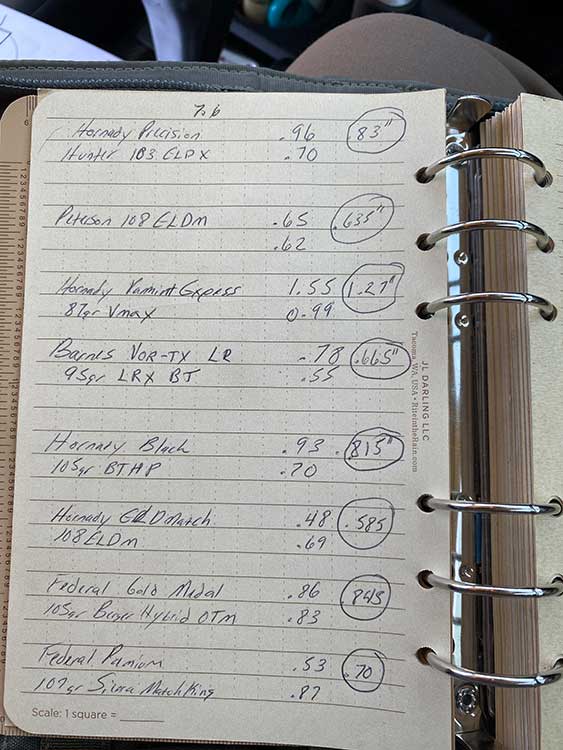 Hornady Precision .96 83"
Hunter 103 ELDX .70
Peterson 108 ELDM .65 .635"
.62
Hornady Varmint Express 1.55 1.27"
87gr Vmax 0.99
Barnes VOR-TX LR .78 .665"
95gr LRX BT .55
Hornady Black .93 .815"
105gr BTHP .70
Hornady ELDMatch .48 .585
108 ELDM .69
Federal Gold Medal .86 .845
105gr Berger Hybrid OTM .83
Federal Premium .53 .70
107gr Sierra MatchKing .87
Scale: 1 square =
JL DARLING LLC
Tacoma WA, USA • RiteintheRain.com